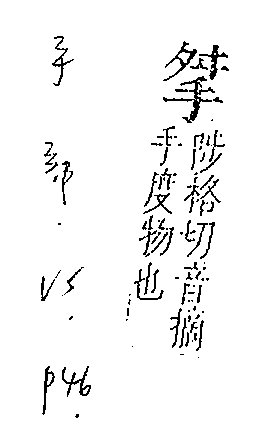 陟格切音摘
手度物也
手部. VS. P46.